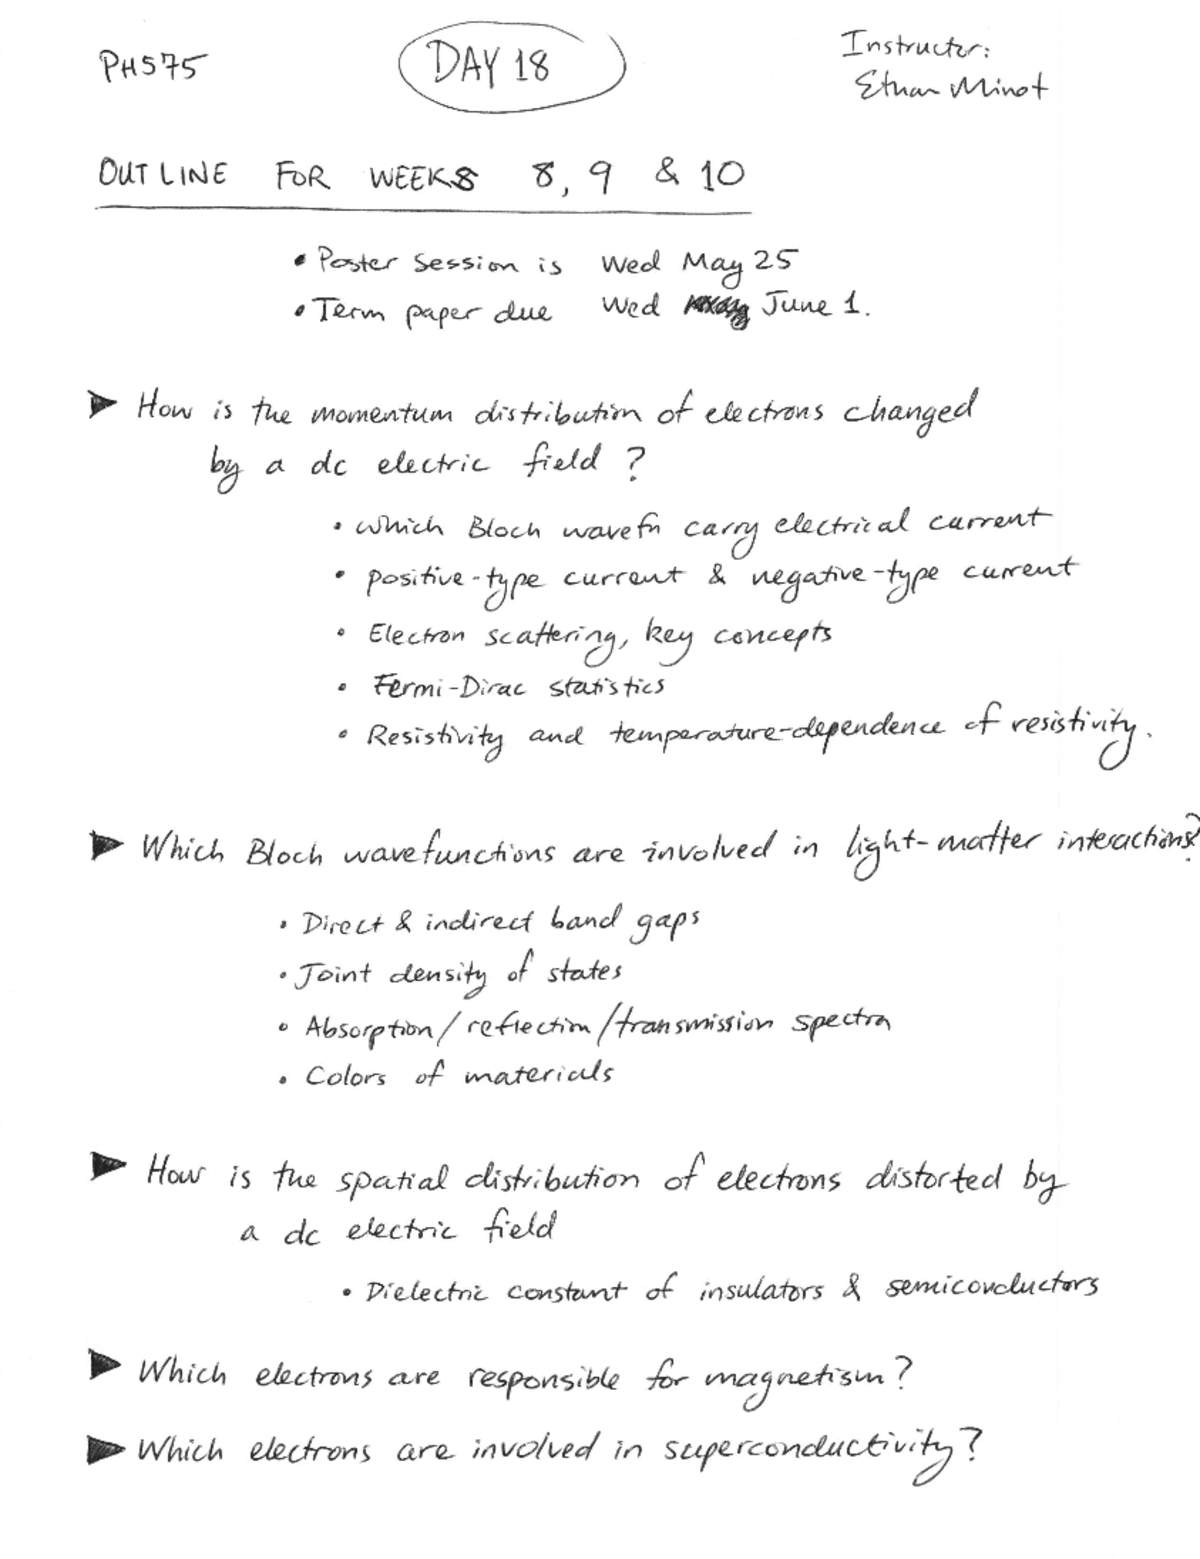 PH575
DAY 18
Instructor:
Ethan Minot
OUTLINE FOR WEEKS 8, 9 & 10
• Poster session is Wed May 25
• Term paper due Wed June 1.
► How is the momentum distribution of electrons changed
by a dc electric field?
• which Bloch wavefn carry electrical current
• positive-type current & negative-type current
• Electron scattering, key concepts
• Fermi-Dirac statistics
• Resistivity and temperature-dependence of resistivity.
► Which Bloch wavefunctions are involved in light-matter interactions?
• Direct & indirect band gaps
• Joint density of states
• Absorption/reflection/transmission spectra
• Colors of materials
► How is the spatial distribution of electrons distorted by
a dc electric field
• Dielectric constant of insulators & semiconductors
► Which electrons are responsible for magnetism?
► Which electrons are involved in superconductivity?